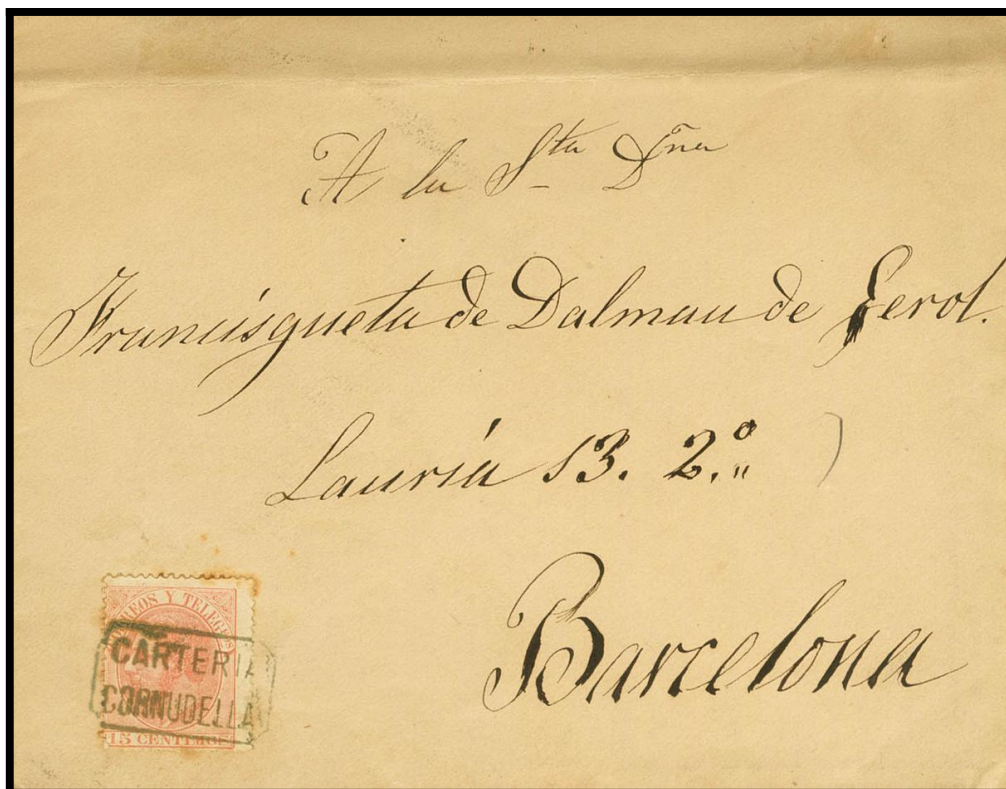 A la Sta Dña
Francisqueta de Dalmau de Ferol.
Lauria 13. 2.º
Barcelona
CORREOS Y TELEGFOS
CARTERIA
CORNUDELLA
15 CENTIMOS